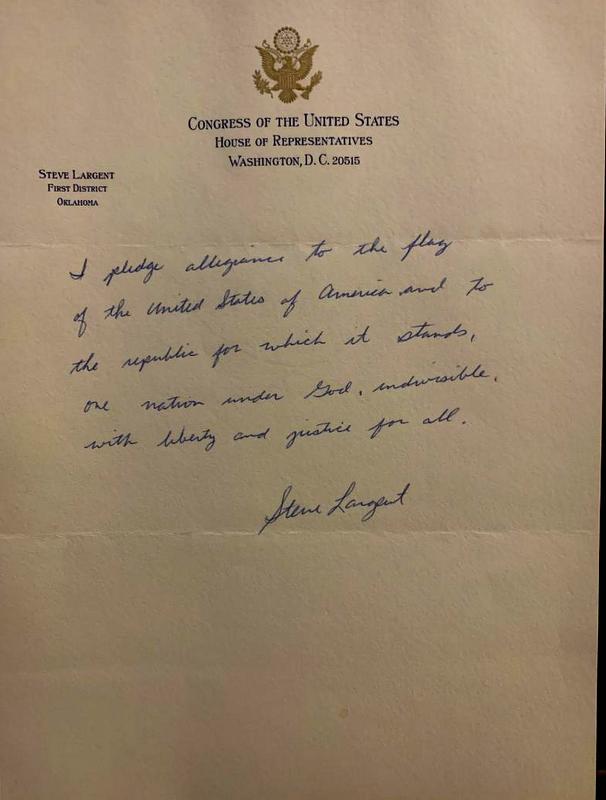 CONGRESS OF THE UNITED STATES
HOUSE OF REPRESENTATIVES
WASHINGTON, D.C. 20515
STEVE LARGENT
FIRST DISTRICT
OKLAHOMA
I pledge allegiance to the flag
of the United States of America and to
the republic for which it stands,
one nation under God, indivisible,
with liberty and justice for all.
Steve Largent